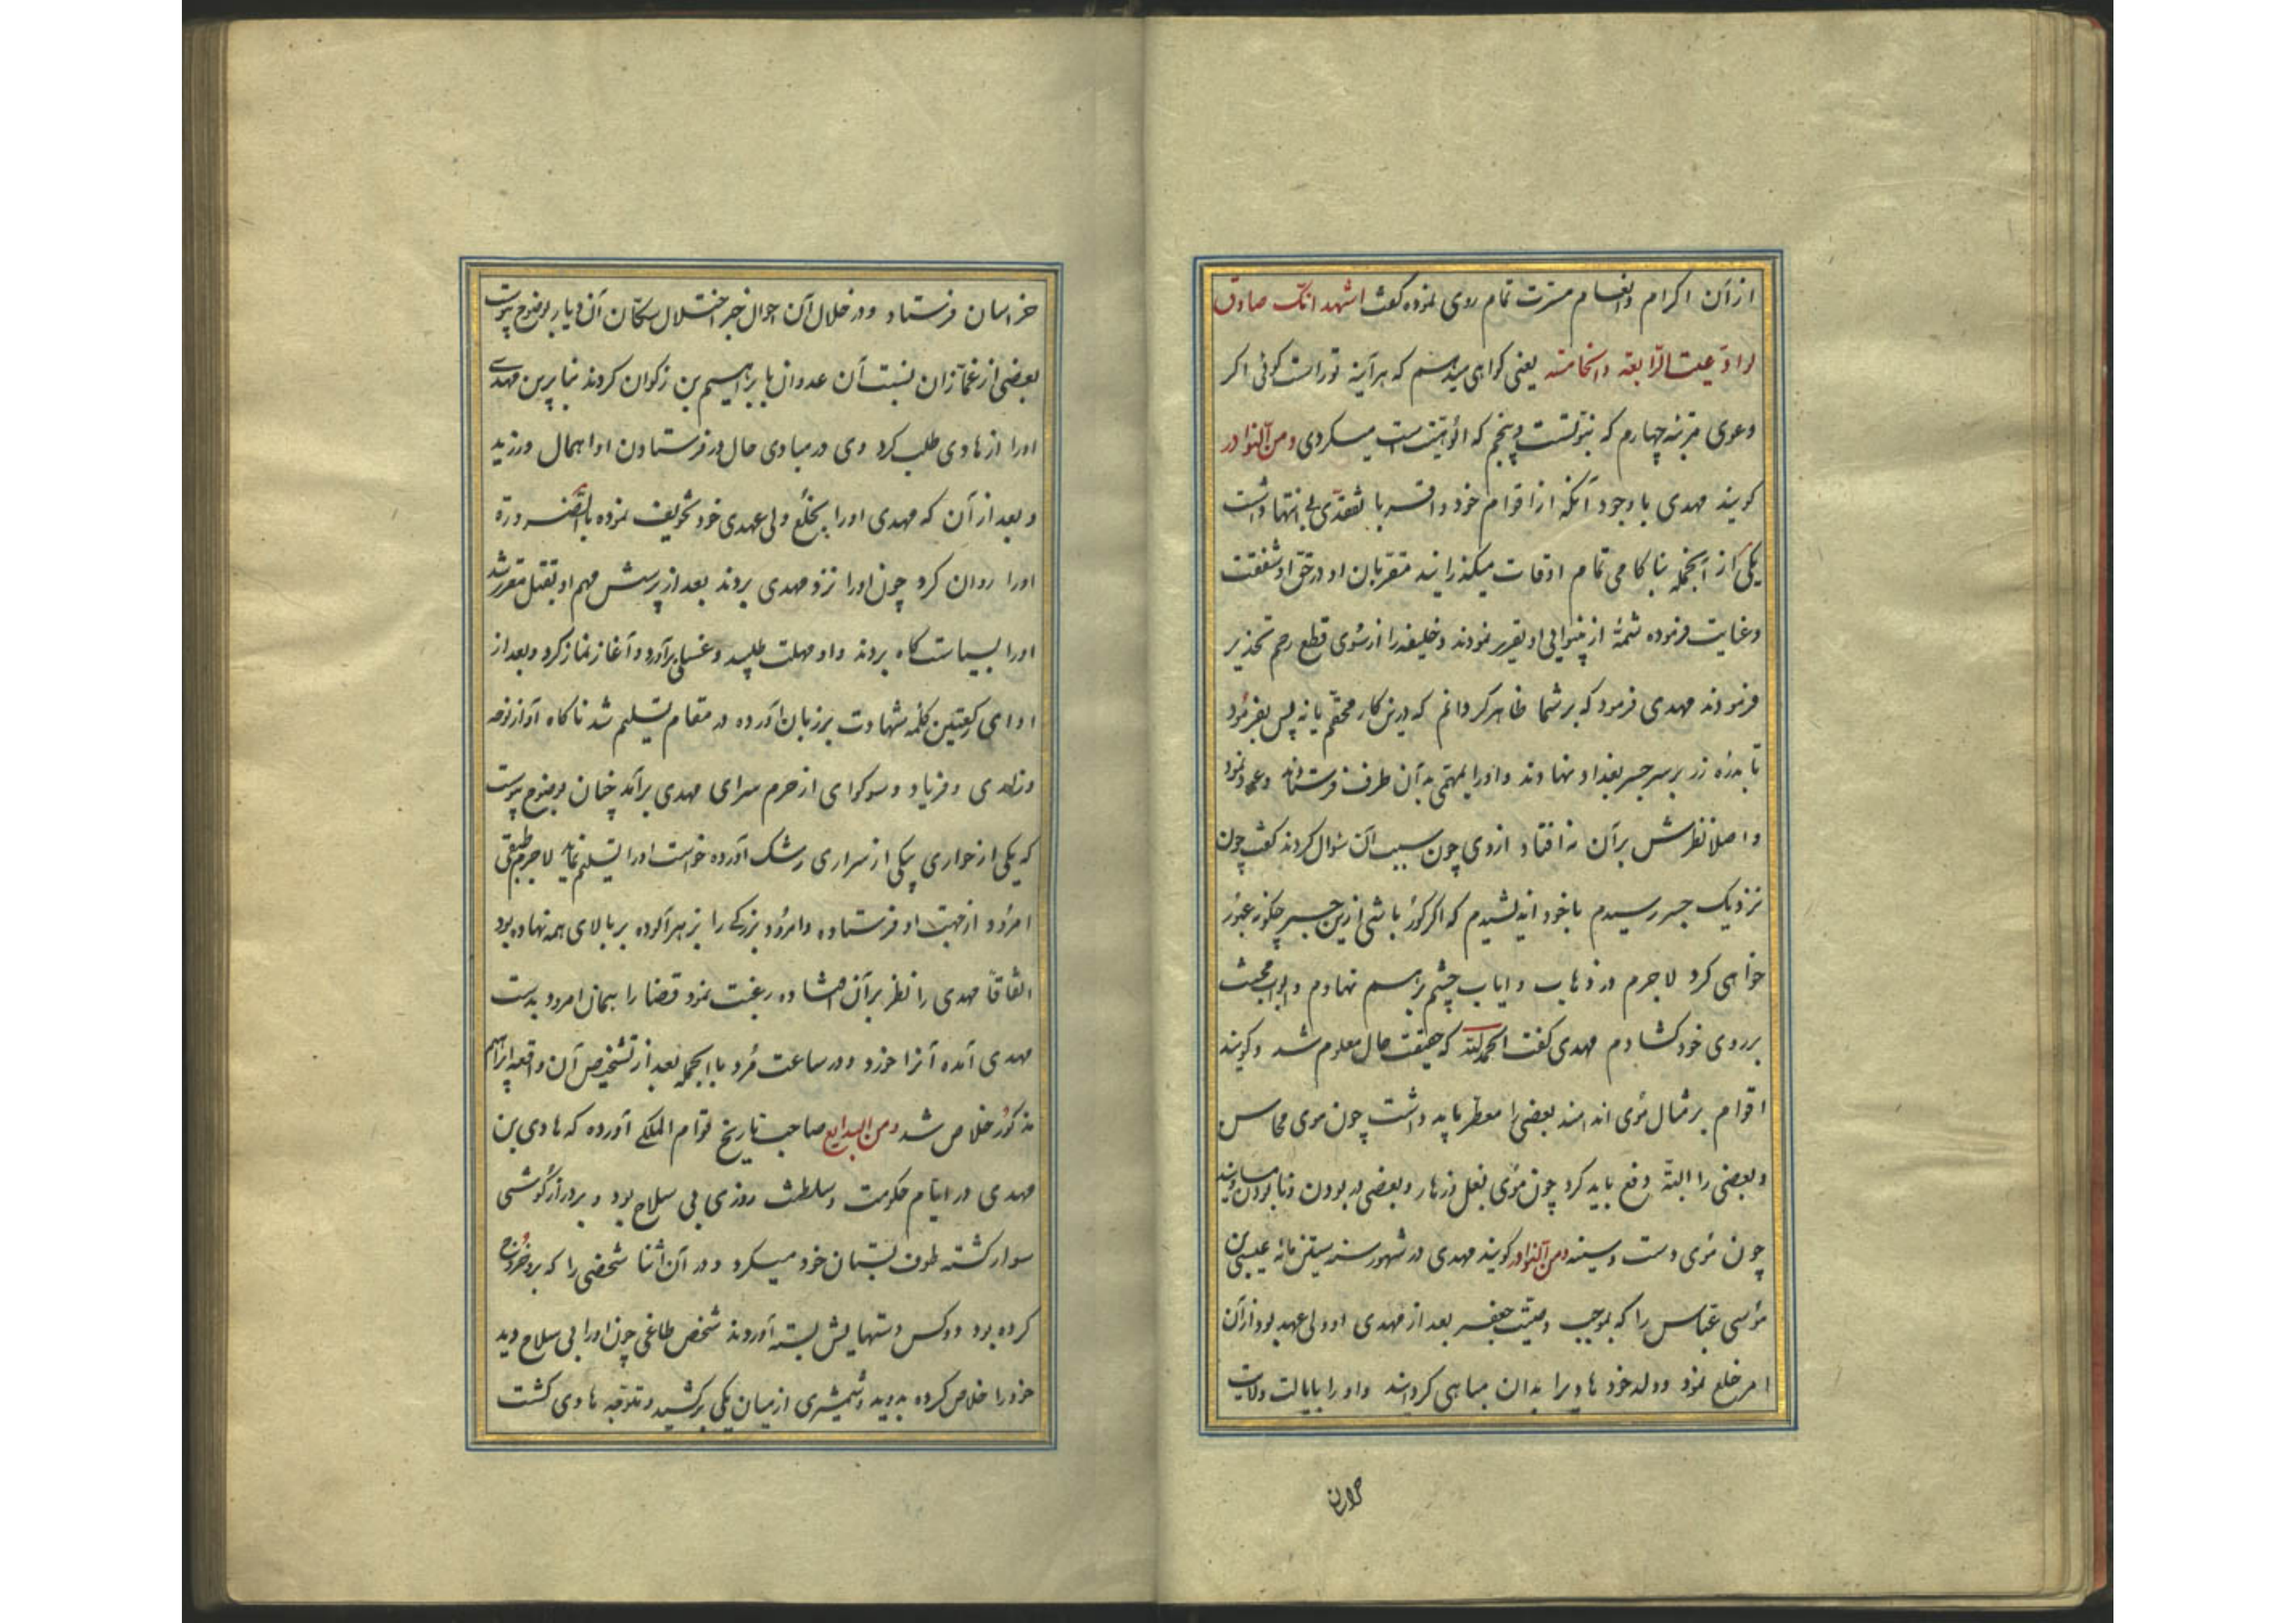 از آن اکرام و انعام مسرت تمام روی نموده گفت اشهد انک صادق
لو ادعیت الرابعه و الخامسه یعنی گواهی میدهم که هرآینه تو راست گوئی اگر
دعوی مرتبه چهارم که نبوتست و پنجم که الوهیتست میکردی ومن النوادر
گویند مهدی با وجود آنکه از اقوام خود و اقربا تفقدی بی انتها داشت
یکی از آنجمله بناکامی تمام اوقات میگذرانید مقربان او در حق او شفقت
وعنایت فرموده شمهٔ از بینوایی او تقریر نمودند و خلیفه را از شوی قطع رحم تحذیر
فرمودند مهدی فرمود که بر شما ظاهر گردانم که درین کار محقم یا نه پس بفرمود
تا بدرهٔ زر بر سر جسر بغداد نهادند و او را بمهمی به آن طرف فرستاند وعود نمود
و اصلا نظرش بر آن نه افتاد از وی چون سبب آن سؤال کردند گفت چون
نزدیک جسر رسیدم با خود اندیشیدم که اگر کور باشی ازین جسر چگونه عبور
خواهی کرد لاجرم در ذهاب و ایاب چشم برهم نهادم و ابواب محبت
بر روی خود گشادم مهدی گفت الحمدلله که حقیقت حال معلوم شد و گویند
اقوام بر مثال موی اندامند بعضی را معطر باید داشت چون موی محاسن
و بعضی را البته دفع باید کرد چون موی بغل و زهار و بعضی در بودن و نابودن مساویند
چون موی دست و سینه ومن النوادر گویند مهدی در شهور سنه ستین مائه عیسی بن
موسی عباس را که بموجب وصیت جعفر بعد از مهدی او ولی عهد بود از آن
امر خلع نمود و ولد خود هادیرا بدان مباهی گردانید و او را بایالت ولایت
خراسان فرستاد و در خلال آن احوال خبر اختلال سکان آن دیار بوضوح پیوست
بعضی از غمازان نسبت آن عدوان با براهیم بن زکوان کردند بنا برین مهدی
اورا از هادی طلب کرد وی در مبادی حال در فرستادن او اهمال ورزید
و بعد از آن که مهدی اورا بخلع ولی عهدی خود تخویف نموده بالضروره
اورا روان کرد چون اورا نزد مهدی بردند بعد از پرسش مهم او بقتل مقرر شد
اورا بسیاست گاه بردند و او مهلت طلبید و غسلی برآورد و آغاز نماز کرد و بعد از
ادای رکعتین کلمه شهادت بر زبان آورده در مقام تسلیم شد ناگاه آواز نوحه
وزاری و فریاد و سوکواری از حرم سرای مهدی برآمد چنان بوضوح پیوست
که یکی از جواری بیکی از سراری رشک آورده خواست اورا تسلیم نماید لاجرم طبقی
امرود از جهت او فرستاده و امرود بزرگی را بزهر آلوده بر بالای همه نهاده بود
اتفاقا مهدی را نظر بر آن افتاده رغبت نمود قضا را همان امرود بدست
مهدی آمده آنرا خورد و در ساعت مُرد بالجمله بعد از تشخیص آن واقعه ابراهیم
مذکور خلاص شد ومن البدایع صاحب تاریخ قوام الملکی آورده که هادی بن
مهدی در ایام حکومت و سلطنت روزی بی سلاح بود و بر درازگوشی
سوار گشته طوف بستان خود میکرد و در آن اثنا شخصی را که برو خروج
کرده بود دوکس دستهایش بسته آوردند شخص طاغی چون اورا بی سلاح دید
خود را خلاص کرده بدوید و شمشیری از میان یکی برکشید و متوجه هادی گشت